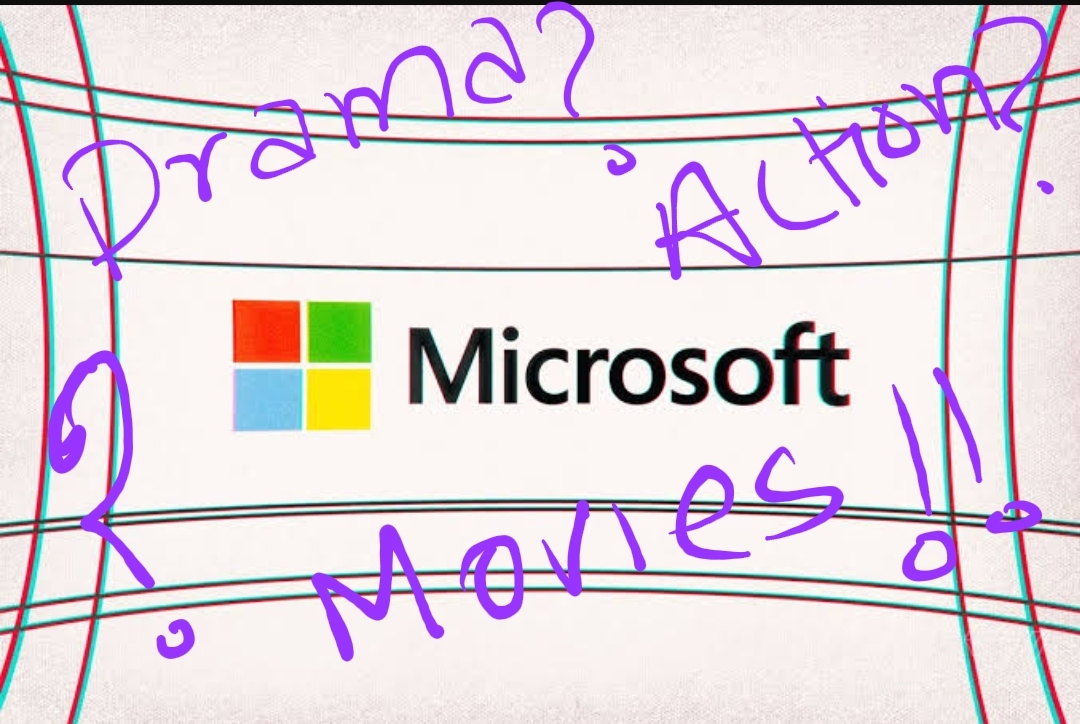 Drama?
Action?
Microsoft
?
Movies!!